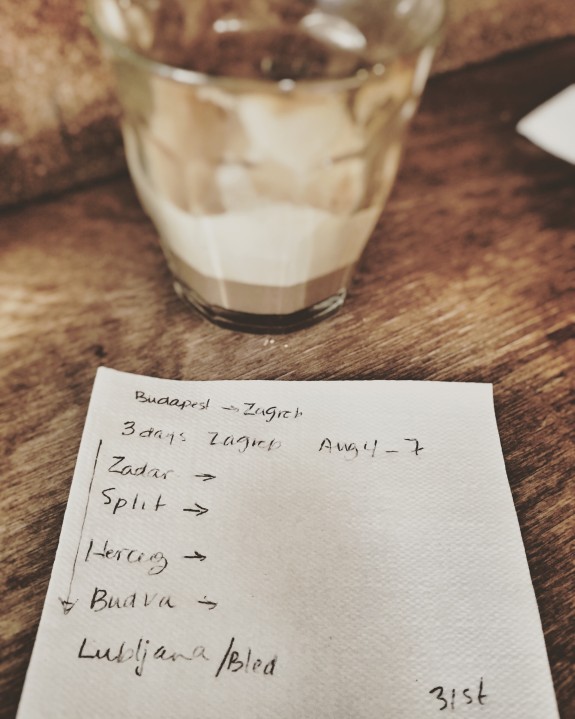 Budapest → Zagreb
3 days Zagreb Aug 4-7
Zadar →
Split →
Herceg →
Budva →
Liubljana/Bled
31st